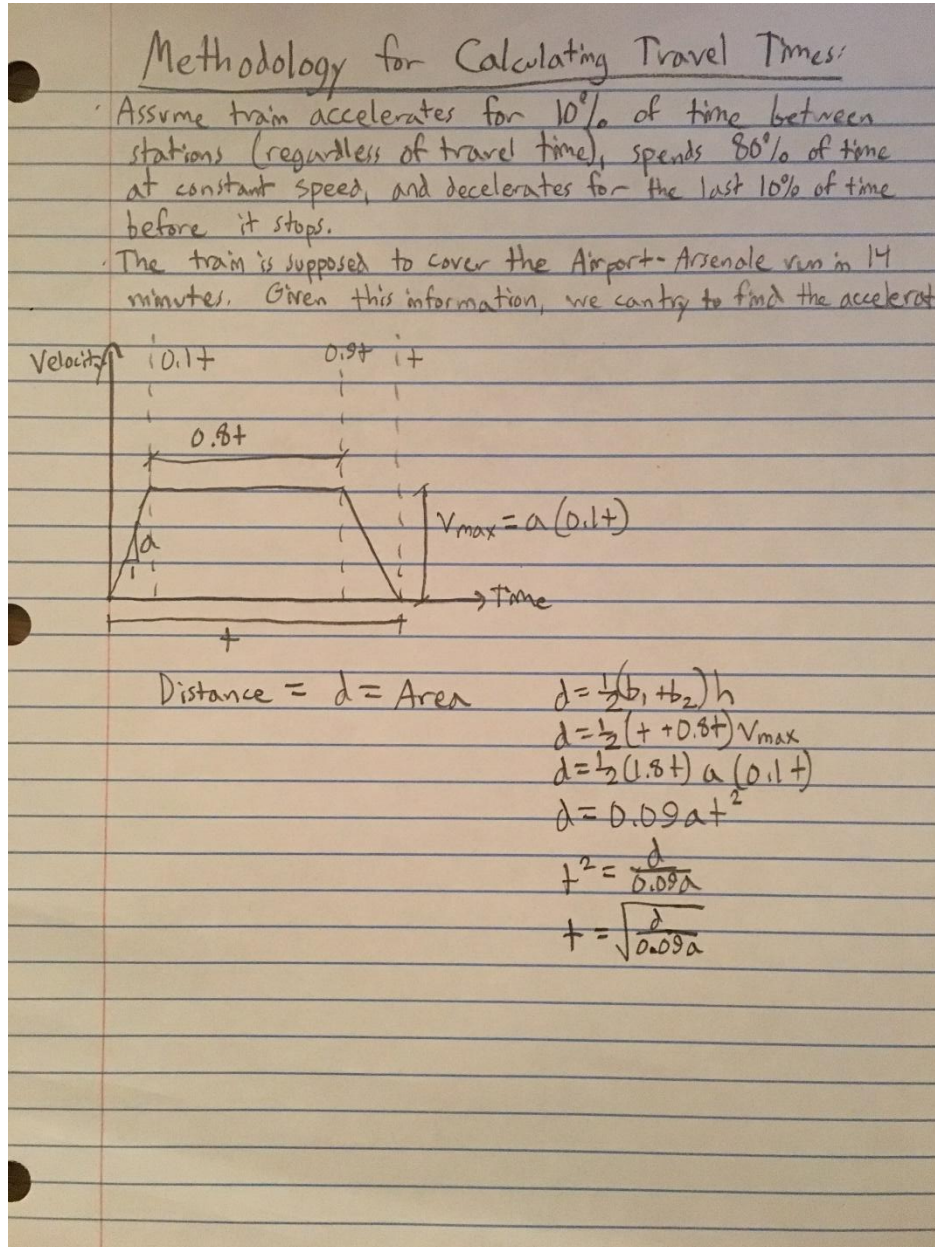 Methodology for Calculating Travel Times:
· Assume train accelerates for 10% of time between
stations (regardless of travel time), spends 80% of time
at constant speed, and decelerates for the last 10% of time
before it stops.
· The train is supposed to cover the Airport-Arsenale run in 14
minutes. Given this information, we can try to find the accelerat
Velocity 0.1t 0.9t t
0.8t
Vmax = a(0.1t)
a
1
Time
t
Distance = d = Area
d = ½(b₁ + b₂)h
d = ½(t + 0.8t)Vmax
d = ½(1.8t) a (0.1t)
d = 0.09at²
t² = d/0.09a
t = √(d/0.09a)